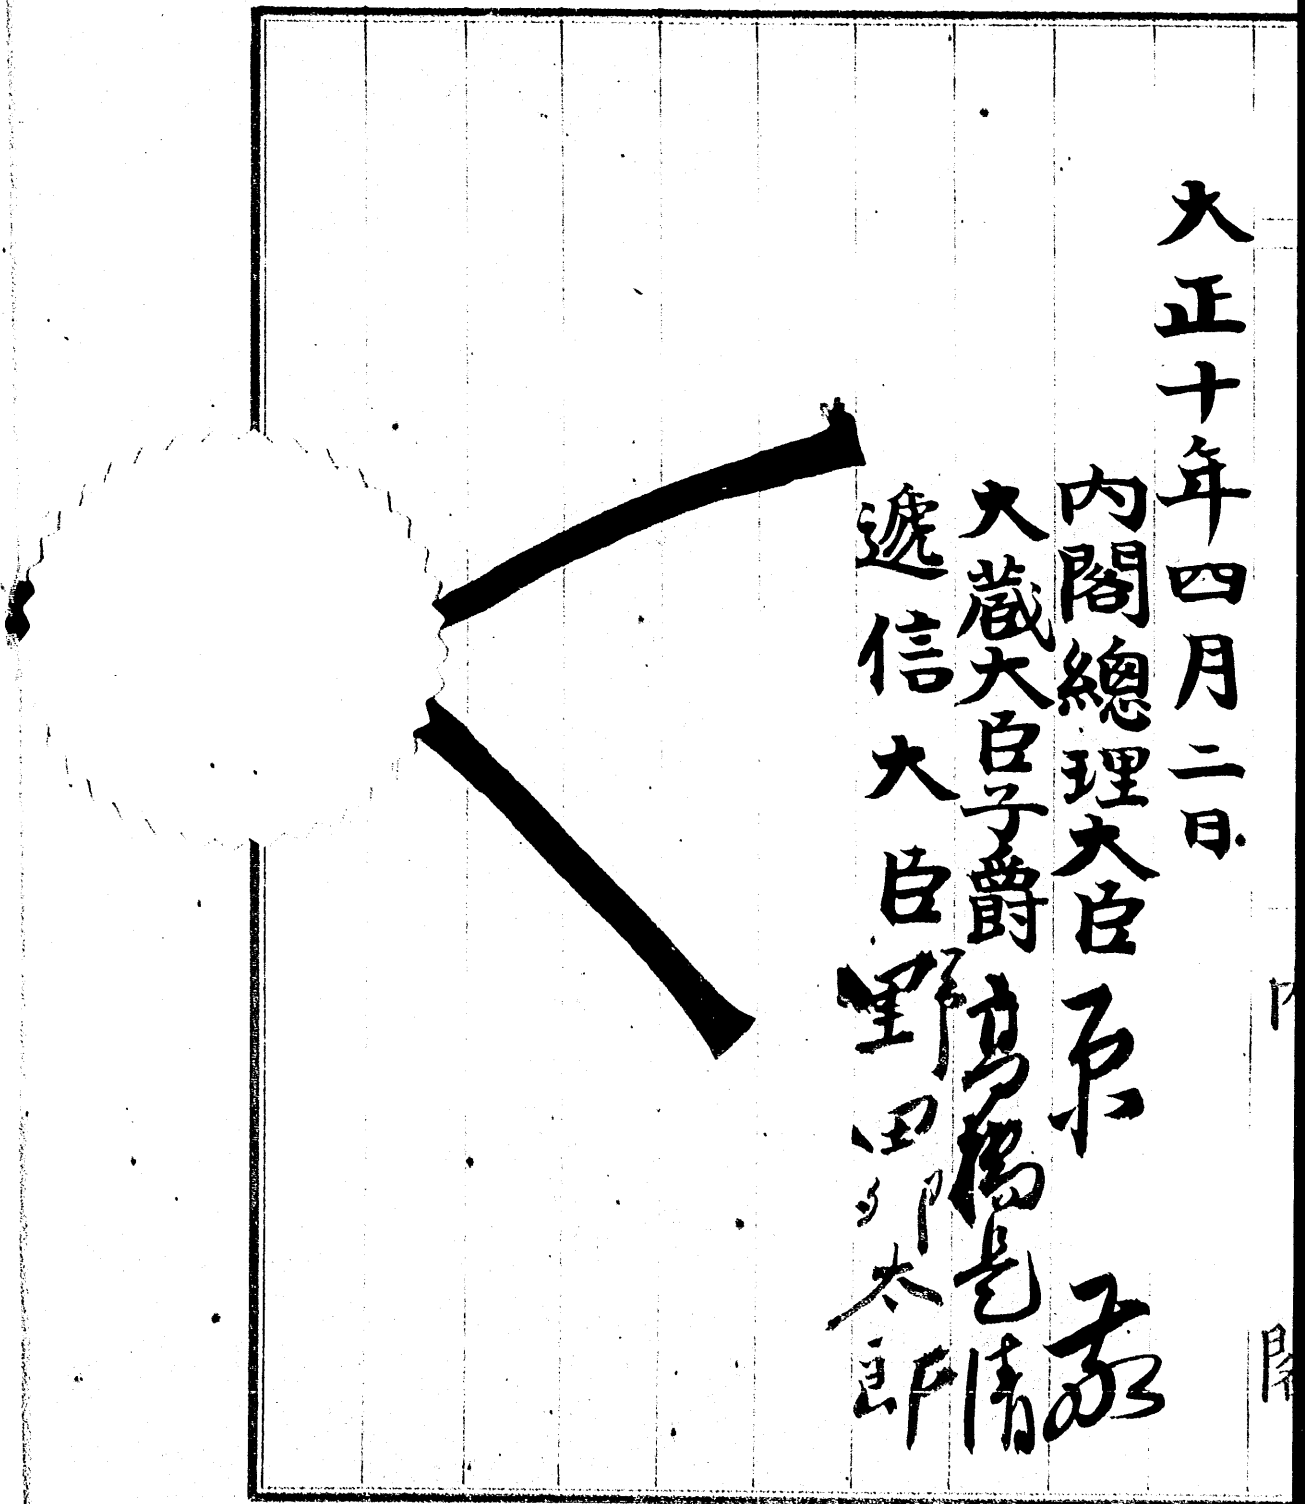 大正十年四月二日
内閣總理大臣 原 敬
大蔵大臣子爵 髙橋是清
遞信大臣 野田卯太郎
内閣